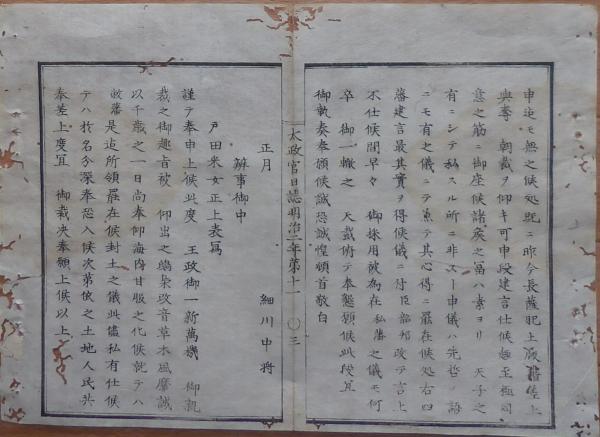 申迄モ無之候処既ニ昨今長薩肥土
與奪　朝裁ヲ仰キ可申段建言仕候趣至極同
意之筋ニ御座候諸侯之冨ハ素ヨリ　天子之
有ニシテ私スル所ニ非スー申儀ハ先哲ノ語
ニモ有之儀ニテ兼テ其心得ニ罷在候処右四
藩建言最其實ヲ得候儀ニ付臣韶邦改テ言上
不仕候間早々　御採用被為在私藩之儀モ何
卒　御一轍之　天裁　テ奉懇願候此段宜
御執奏奉願候誠恐誠惶頓首敬白
太政官日誌明治二年第十一　〇三
正月　細川中将
辨事御中
戸田采女正上表冩
謹テ奉申上候此度　王政御一新萬機　御親
裁之御趣旨被　仰出之　改音草木風靡誠
以千歳之一日尚奉仰海内甘服之化候就テハ
敝藩是迄所領罷在候封土之儀此儘私有仕候
テハ於名分深奉恐入候次第依之土地人民共
奉差上度宜　御裁决奉願上候以上